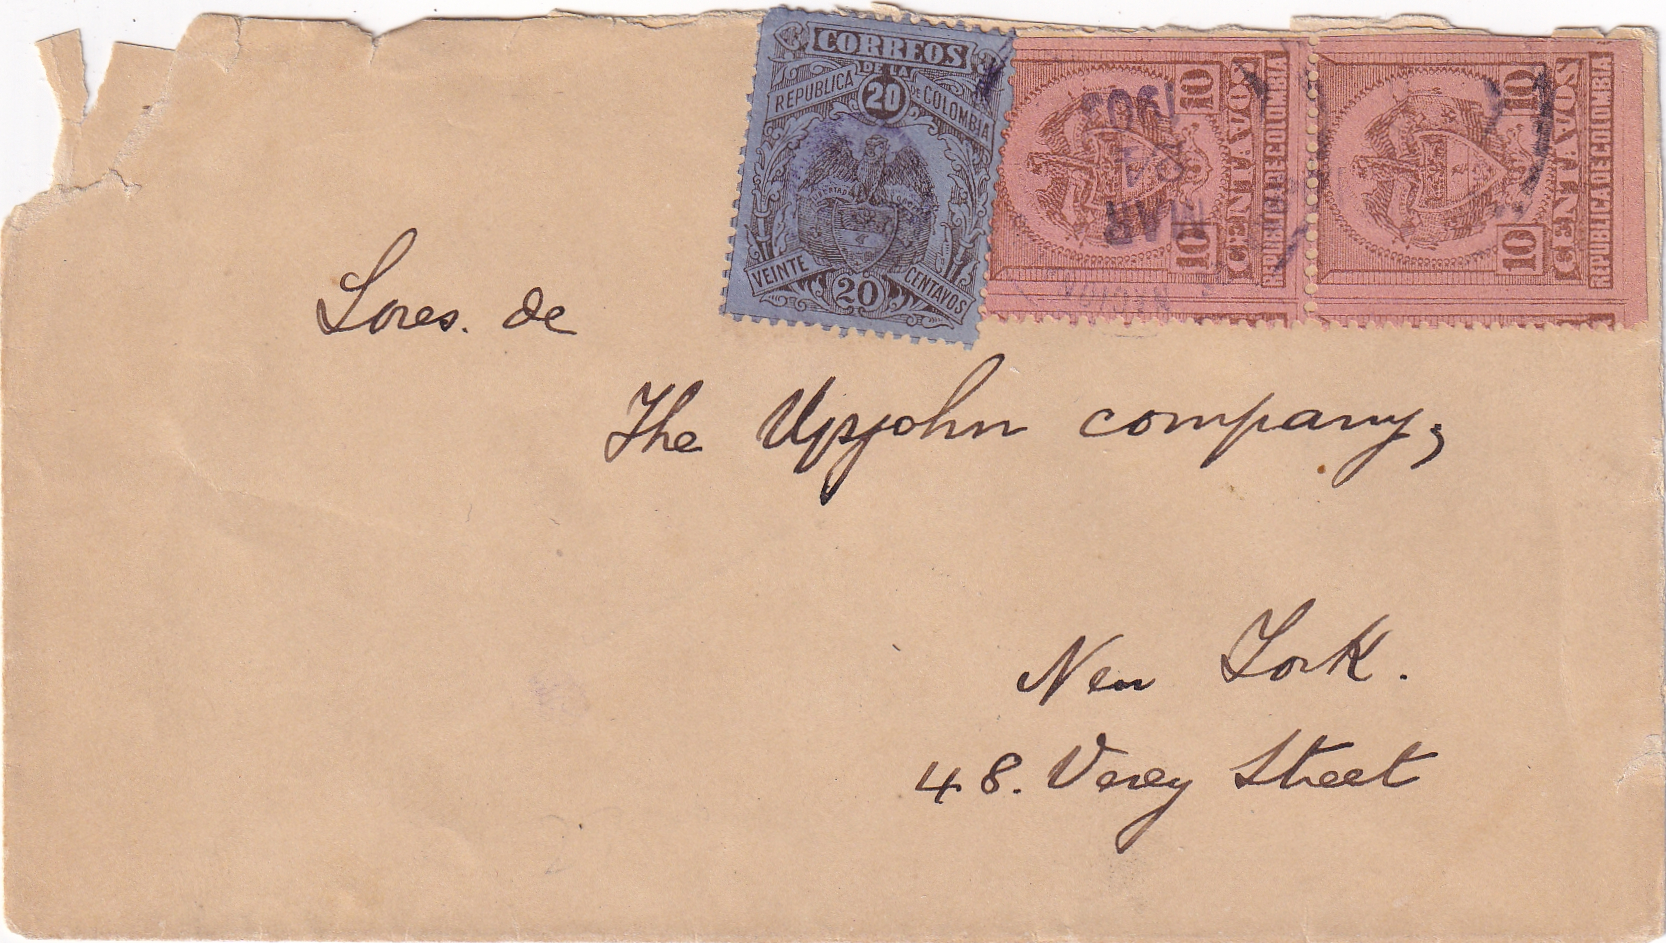 CORREOS
DE LA
REPUBLICA 20 DE COLOMBIA
VEINTE 20 CENTAVOS
10 CENTAVOS 10
REPUBLICA DE COLOMBIA
10 CENTAVOS 10
REPUBLICA DE COLOMBIA
MAR
24
1903
Sores. de
The Upjohn company,
New York.
48. Vesey Street